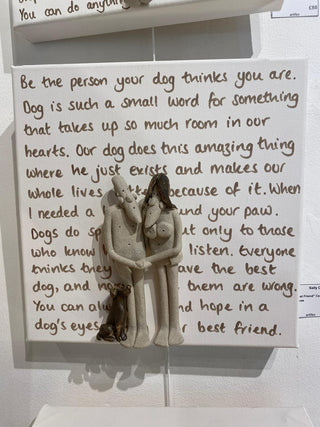 You can do anything
£88
Be the person your dog thinks you are.
Dog is such a small word for something
that takes up so much room in our
hearts. Our dog does this amazing thing
where he just exists and makes our
whole lives because of it. When
I needed a und your paw.
Dogs do sp ut only to those
who know listen. Everyone
thinks they ave the best
dog, and no them are wrong.
You can alw nd hope in a
dog's eyes r best friend.